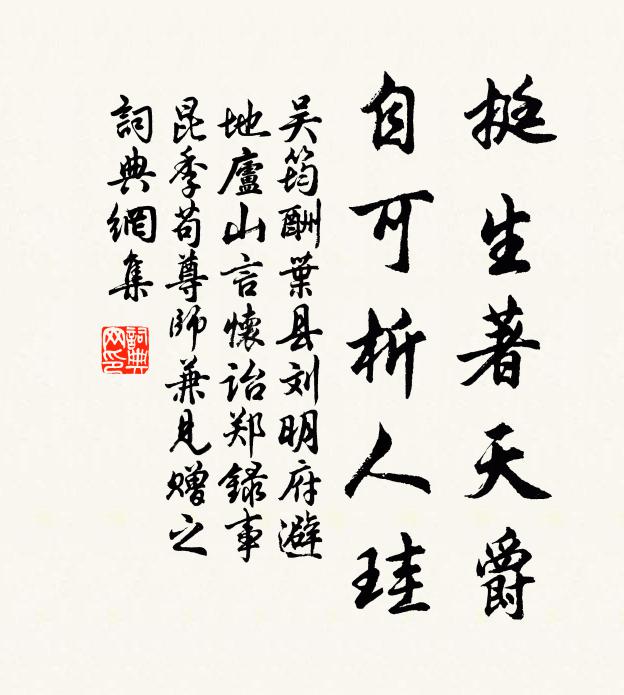 挺生著天爵
自可析人珪
吴筠酬葉县刘明府避
地廬山言懷诒郑録事
昆季苟尊師兼見赠之
詞典網集
詞典网印